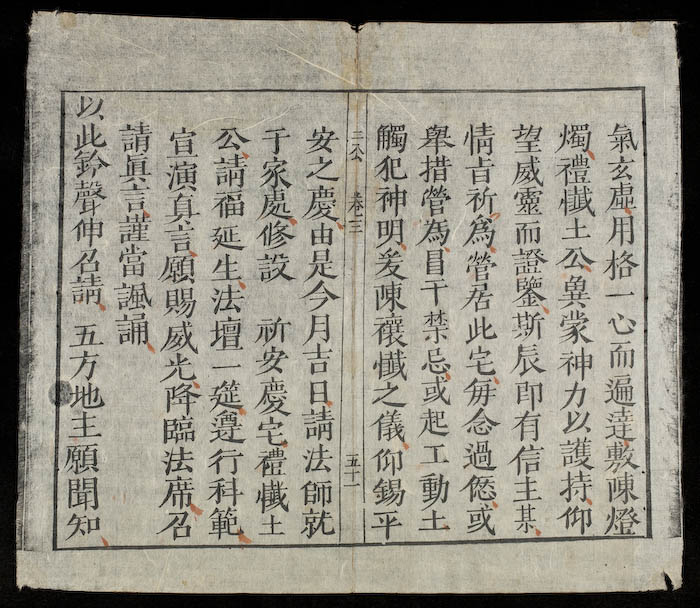 氣玄虛用格一心而遍達敷陳燈
燭禮懺土公兾蒙神力以護持仰
望威靈而證鑒斯辰即有信主某
情旨祈爲營居此宅毎念過愆或
舉措營為冐干禁忌或起工動土
觸犯神明爰陳禳懺之儀仰錫平
土公 卷三 五十一
安之慶由是今月吉日請法師就
于家處修設 祈安慶宅禮懺土
公請福延生法壇一筵遵行科範
宣演真言願賜威光降臨法席召
請眞言謹當諷誦
以此鈴聲伸召請 五方地主願聞知